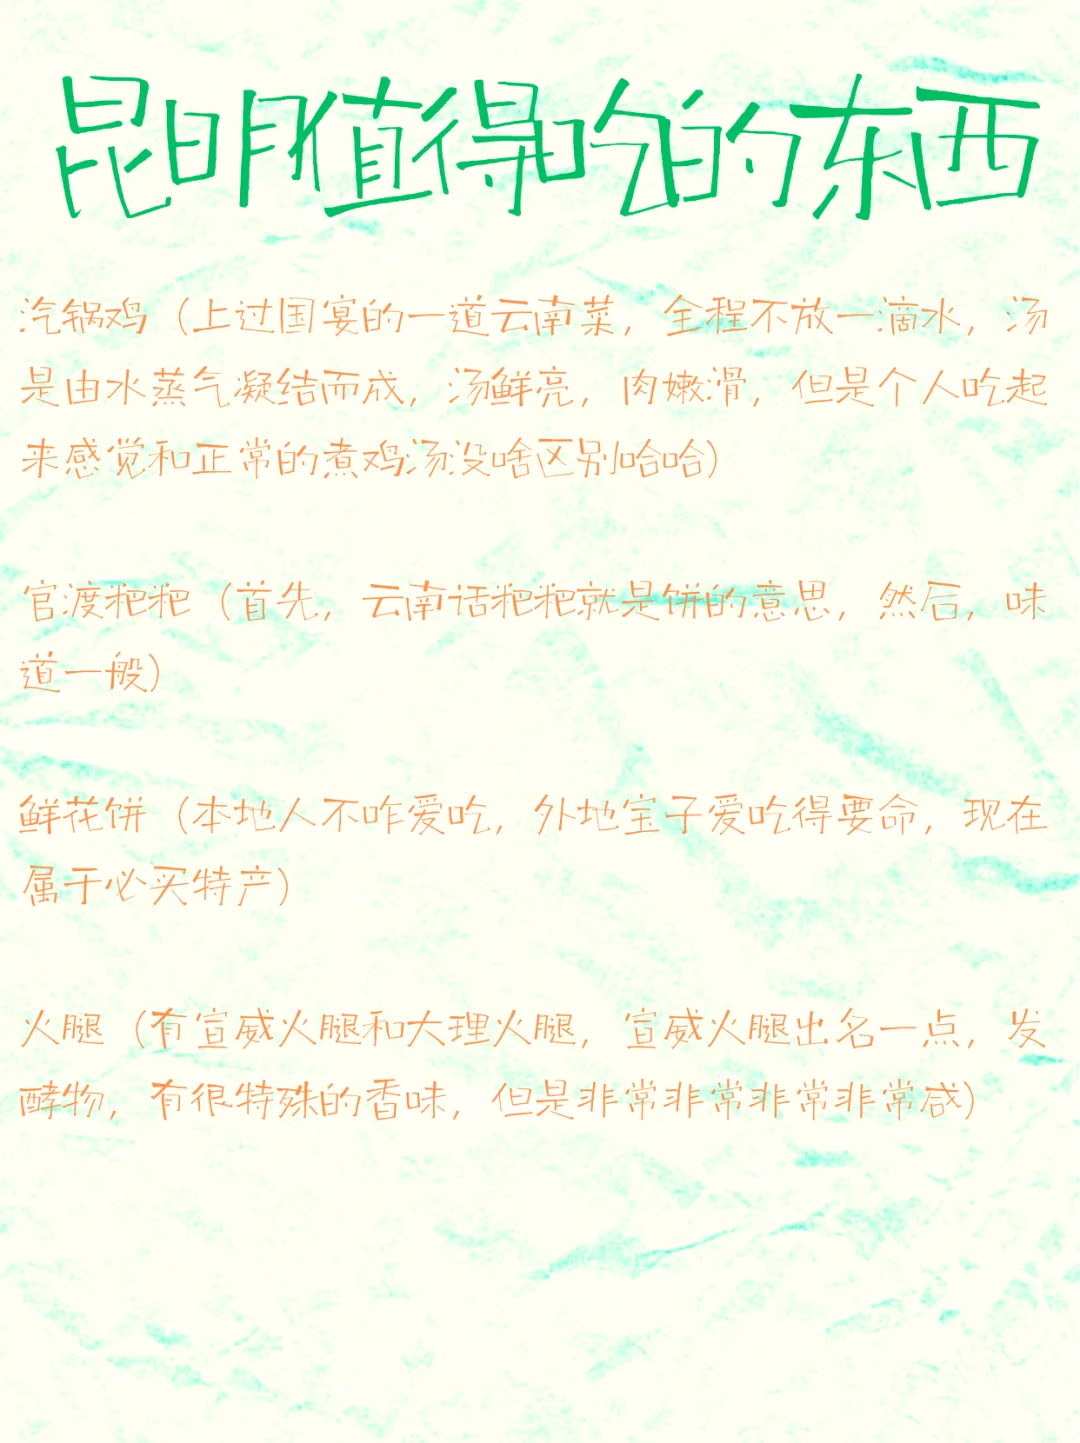 昆明值得吃的东西
汽锅鸡（上过国宴的一道云南菜，全程不放一滴水，汤
是由水蒸气凝结而成，汤鲜亮，肉嫩滑，但是个人吃起
来感觉和正常的煮鸡汤没啥区别哈哈）
官渡粑粑（首先，云南话粑粑就是饼的意思，然后，味
道一般）
鲜花饼（本地人不咋爱吃，外地宝子爱吃得要命，现在
属于必买特产）
火腿（有宣威火腿和大理火腿，宣威火腿出名一点，发
酵物，有很特殊的香味，但是非常非常非常非常咸）